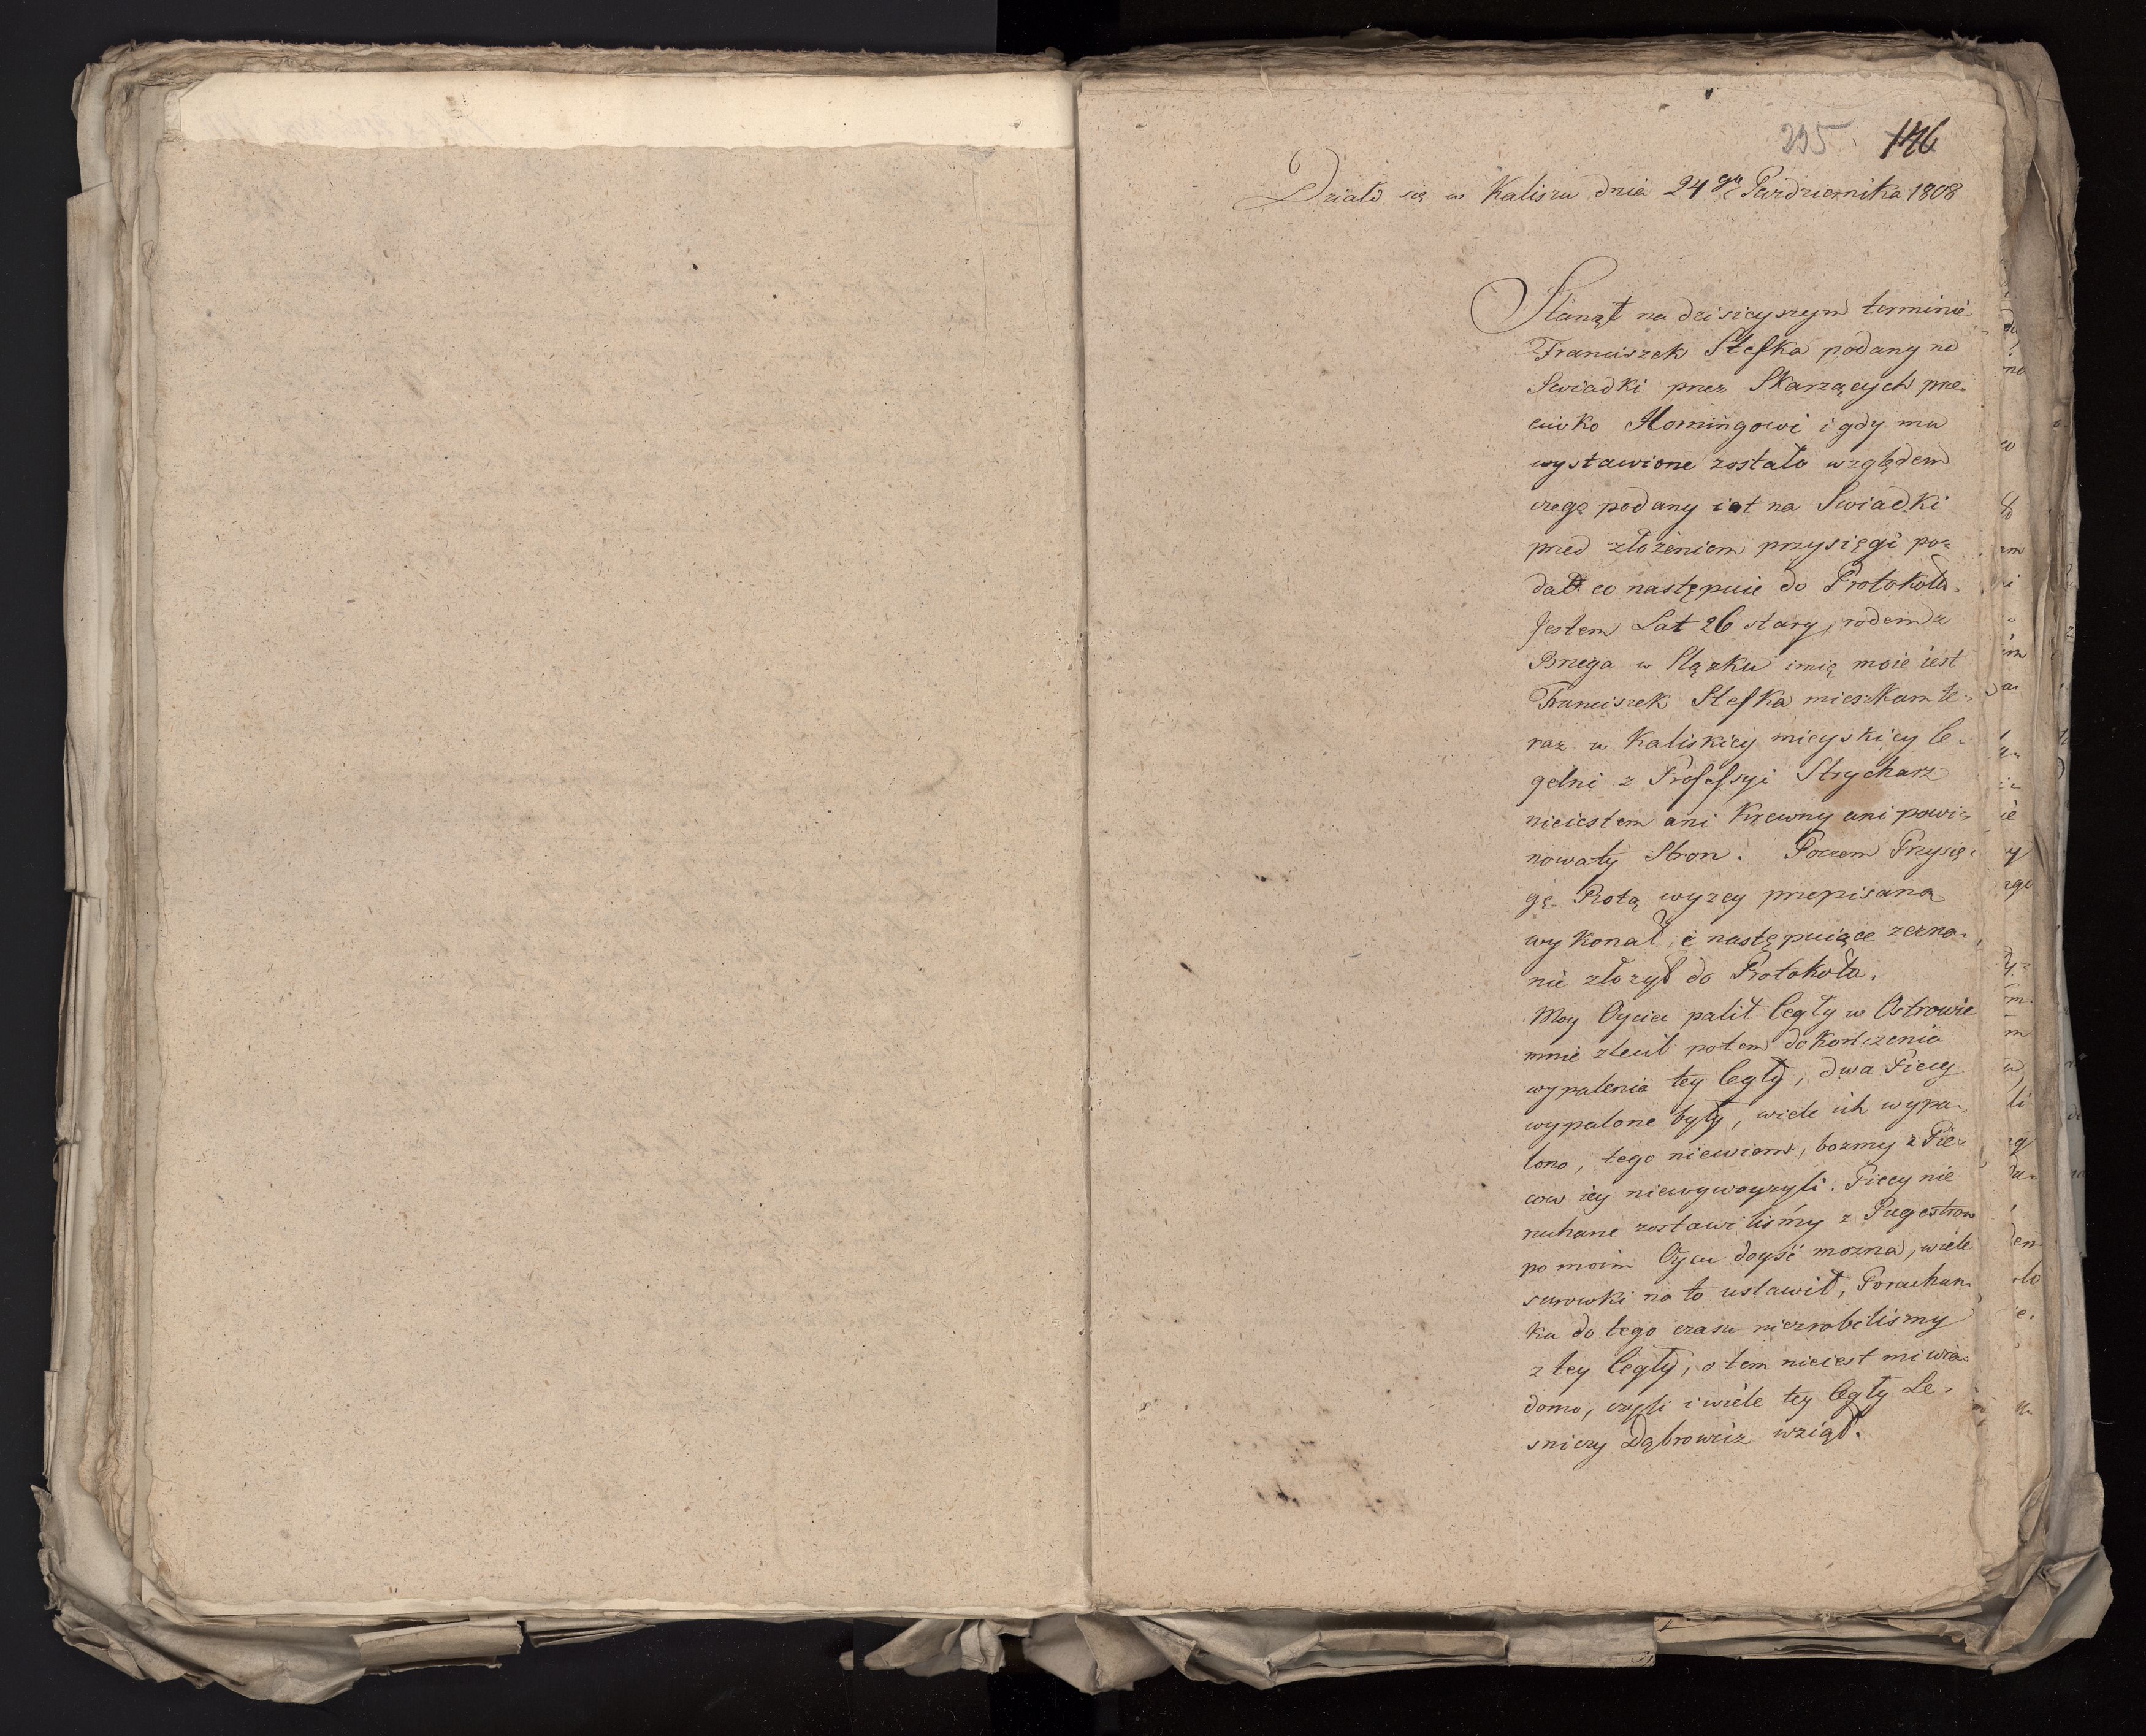 295. 146
Działo się w Kaliszu dnia 24go Października 1808
Stanął na dzisieyszym terminie
Franciszek Stefka podany na
Swiadki przez Skarzących prze-
ciwko Horningowi i gdy mu
wystawione zostało względem
czego podany iest na Swiadki
pried złożeniem przysięgi po-
dał co następuie do Protokołu.
Jestem Lat 26 stary, rodem z
Brzega w Slązku imię moie iest
Franciszek Stefka mieszkam te-
raz w Kaliskiey mieyskiey Ce-
gelni z Professyi Strycharz
nieiestem ani Krewny ani powi-
nowaty Stron. Poczem Przysię-
gę Rotą wyzey przepisana
wykonał, i następuiące zezna-
nie złozył do Protokołu.
Moy Oyciec palił Cegły w Ostrowie
mnie zlecił potem dokończenia
wypalenia tey Cegły, dwa Piecy
wypalone były, wiele ich wypa-
lono, tego niewiem, bozmy z Pie-
cow iey niewywoyzyli. Piecy nie
ruchane zostawiliśmy z Regestrow
po moim Oycu doyść mozna, wiele
surowki na to ustawił, Porachun-
ku do tego czasu niezrobilismy
z tey Cegły, o tem nieiest mi wia-
domo, czyli i wiele tey Cegły Le-
sniczy Dąbrowicz wziął.